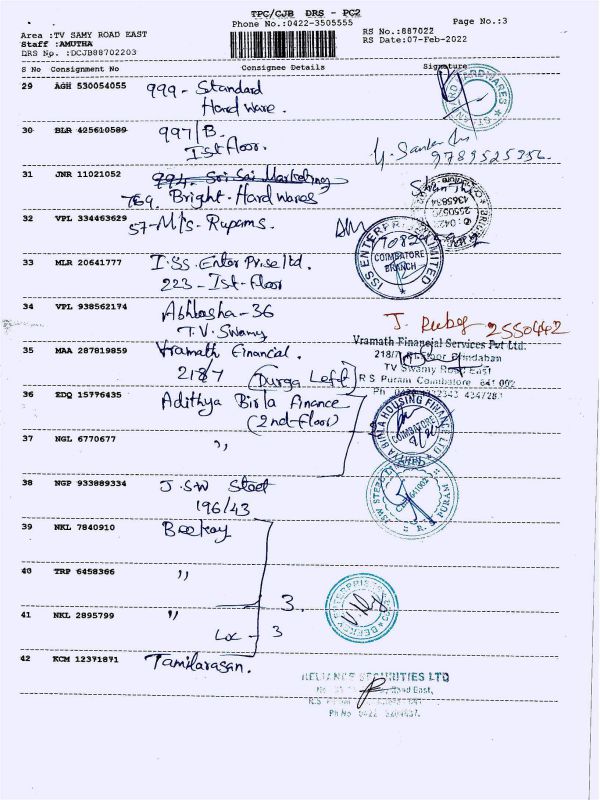 TPC/CJB DRS - PC2
Phone No.:0422-3505555
Page No.:3
Area :TV SAMY ROAD EAST
RS No.:887022
Staff :AMUTHA
RS Date:07-Feb-2022
DRS No. :DCJB88702203
S No Consignment No Consignee Details Signature
29 AGH 530054055 999 - Standard
Hardware.
30 BLR 425610589 997/B.
Ist Floor.
9789525356
31 JNR 11021052 994. Sri Sai Marketing
769. Bright. Hardwares
32 VPL 334463629 57-M/s. Rupams.
ISS ENTERPRISE LIMITED
COIMBATORE
BRANCH
33 MLR 20641777 I.SS. Enter Prise ltd.
223 - Ist-floor
34 VPL 938562174 Abhbasha-36
T.V. Swamy
2550442
35 MAA 287819859 Vramath Financial.
218/7 (Durga Left)
Vramath Financial Services Pvt Ltd.
TV Swamy Road East
R S Puram Coimbatore 641 002
36 EDQ 15776435 Adithya Birla Finance
(2nd-floor)
BIRLA HOUSING FINANCE LTD
COIMBATORE
37 NGL 6770677 ,,
38 NGP 933889334 J.SW Steel
196/43
39 NKL 7840910 Beekay
40 TRP 6458366 ,,
3.
41 NKL 2895799 ,,
Loc - 3
42 KCM 12371871 Tamilarasan.
RELIANCE SECURITIES LTD
Road East,
Ph No 0422